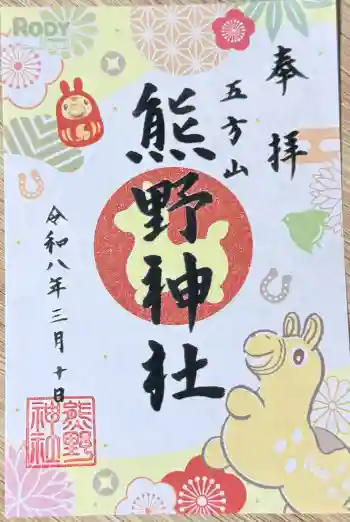 RODY
奉拝
五方山
熊野神社
令和八年三月十日
熊野
神社